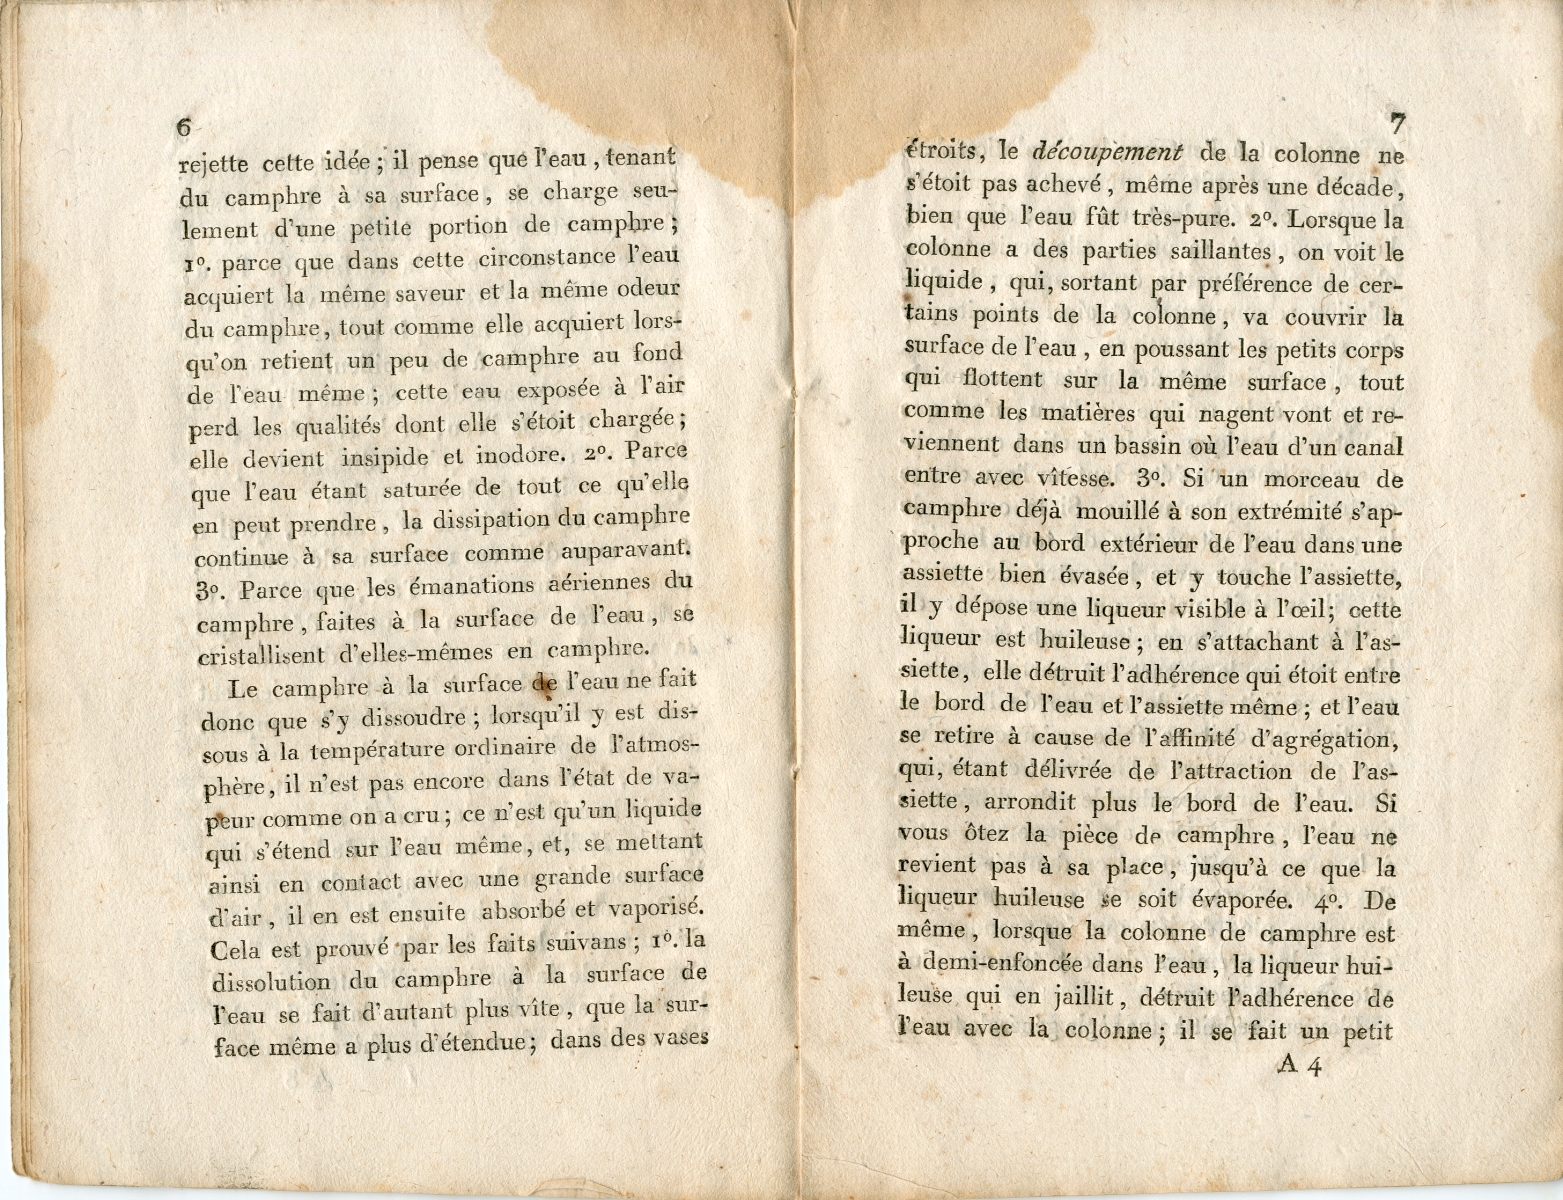 6
rejette cette idée ; il pense que l'eau , tenant
du camphre à sa surface , se charge seu-
lement d'une petite portion de camphre ;
1º. parce que dans cette circonstance l'eau
acquiert la même saveur et la même odeur
du camphre , tout comme elle acquiert lors-
qu'on retient un peu de camphre au fond
de l'eau même ; cette eau exposée à l'air
perd les qualités dont elle s'étoit chargée ;
elle devient insipide et inodore. 2º. Parce
que l'eau étant saturée de tout ce qu'elle
en peut prendre , la dissipation du camphre
continue à sa surface comme auparavant.
3º. Parce que les émanations aériennes du
camphre , faites à la surface de l'eau , se
cristallisent d'elles-mêmes en camphre.
Le camphre à la surface de l'eau ne fait
donc que s'y dissoudre ; lorsqu'il y est dis-
sous à la température ordinaire de l'atmos-
phère , il n'est pas encore dans l'état de va-
peur comme on a cru ; ce n'est qu'un liquide
qui s'étend sur l'eau même , et , se mettant
ainsi en contact avec une grande surface
d'air , il en est ensuite absorbé et vaporisé.
Cela est prouvé par les faits suivans ; 1º. la
dissolution du camphre à la surface de
l'eau se fait d'autant plus vîte , que la sur-
face même a plus d'étendue ; dans des vases
7
étroits, le découpement de la colonne ne
s'étoit pas achevé , même après une décade ,
bien que l'eau fût très-pure. 2º. Lorsque la
colonne a des parties saillantes , on voit le
liquide , qui, sortant par préférence de cer-
tains points de la colonne , va couvrir la
surface de l'eau , en poussant les petits corps
qui flottent sur la même surface , tout
comme les matières qui nagent vont et re-
viennent dans un bassin où l'eau d'un canal
entre avec vîtesse. 3º. Si un morceau de
camphre déjà mouillé à son extrémité s'ap-
proche au bord extérieur de l'eau dans une
assiette bien évasée , et y touche l'assiette,
il y dépose une liqueur visible à l'œil; cette
liqueur est huileuse ; en s'attachant à l'as-
siette, elle détruit l'adhérence qui étoit entre
le bord de l'eau et l'assiette même ; et l'eau
se retire à cause de l'affinité d'agrégation,
qui, étant délivrée de l'attraction de l'as-
siette , arrondit plus le bord de l'eau. Si
vous ôtez la pièce de camphre , l'eau ne
revient pas à sa place , jusqu'à ce que la
liqueur huileuse se soit évaporée. 4º. De
même , lorsque la colonne de camphre est
à demi-enfoncée dans l'eau , la liqueur hui-
leuse qui en jaillit , détruit l'adhérence de
l'eau avec la colonne ; il se fait un petit
A 4